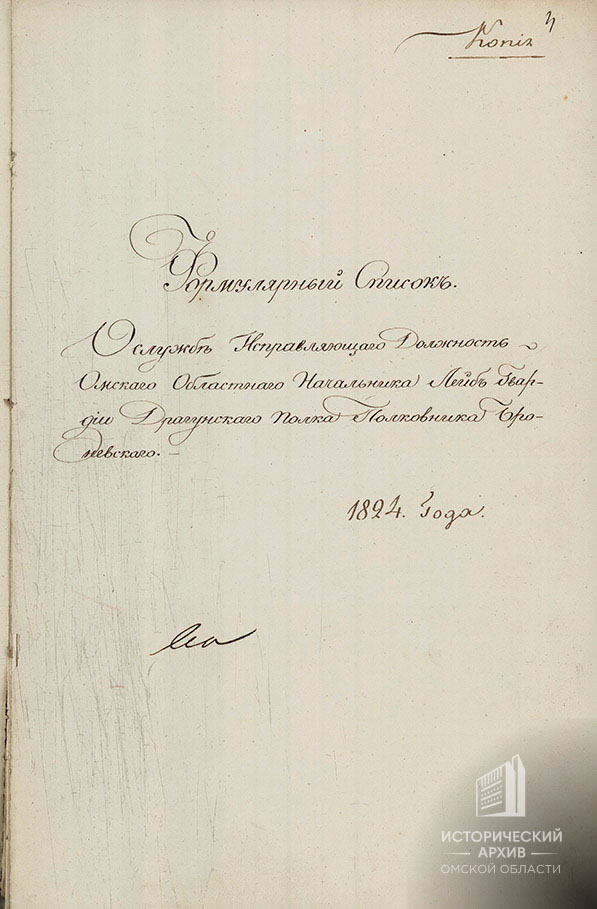 4
Копія
Формулярный Списокъ.
О службѣ Исправляющаго Должность
Омскаго Областнаго Начальника Лейбъ Гвар-
діи Драгунскаго полка Полковника Бро-
невскаго.-
1824. Года.
ИСТОРИЧЕСКИЙ
АРХИВ
ОМСКОЙ ОБЛАСТИ